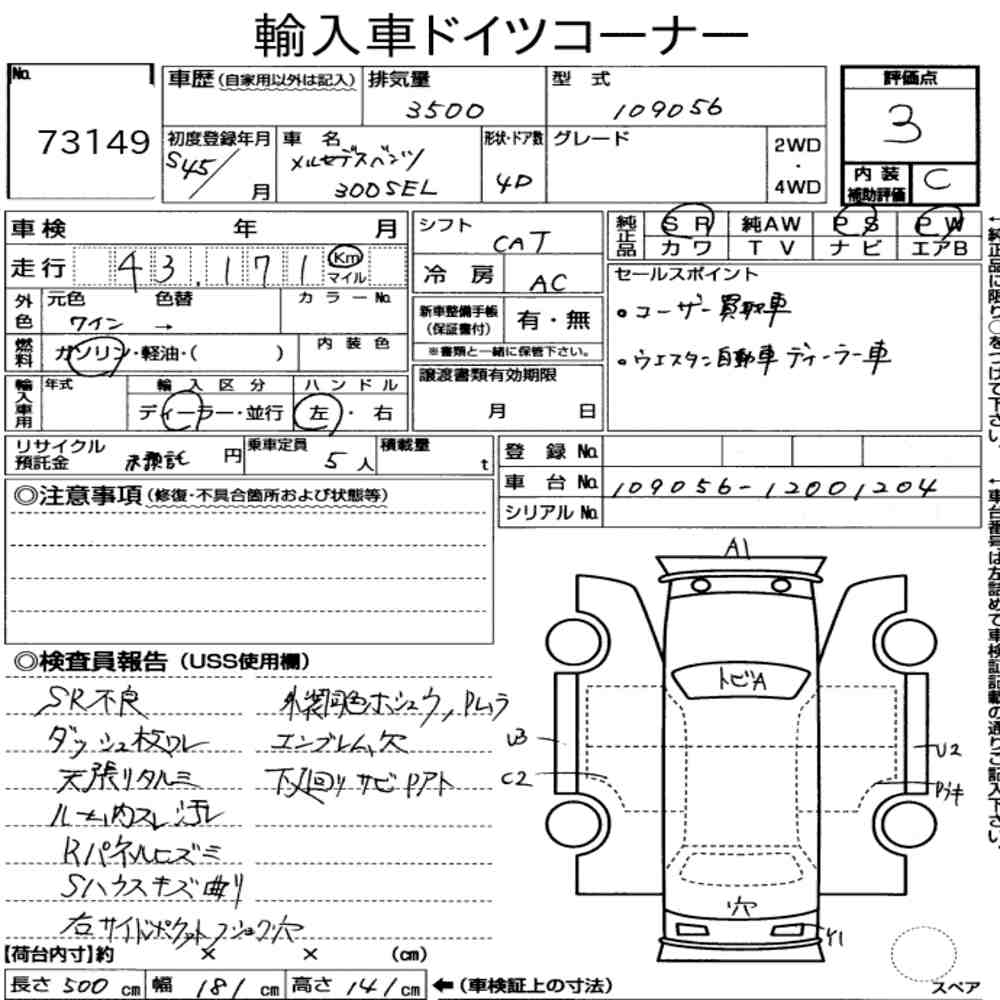 輸入車ドイツコーナー
No. 73149
車歴(自家用以外は記入) 排気量 3500 型式 109056
初度登録年月 S45/ 月 車名 メルセデスベンツ 300SEL 形状・ドア数 4D グレード 2WD・4WD
評価点 3
内装補助評価 C
車検 年 月
走行 43,171 Km マイル
外色 元色 ワイン 色替 → カラーNo.
燃料 ガソリン・軽油・( ) 内装色
輸入車用 年式 輸入区分 ディーラー・並行 ハンドル 左・右
シフト CAT
冷房 AC
新車整備手帳(保証書付) 有・無
※書類と一緒に保管下さい。
譲渡書類有効期限 月 日
純正品 SR 純AW PS PW
カワ TV ナビ エアB
セールスポイント
・ユーザー買取車
・ウェスタン自動車ディーラー車
←純正品に限り○をつけて下さい。
リサイクル預託金 未預託 円 乗車定員 5人 積載量 t
登録No.
車台No. 109056-12001204
シリアルNo.
←車台番号は左詰めで車検証記載の通りご記入下さい。
◎注意事項(修復・不具合箇所および状態等)
◎検査員報告(USS使用欄)
SR不良
ダッシュ板ワレ
天張リタルミ
ルーム内スレ汚レ
Rパネルヒズミ
Sハウスキズ曲リ
右サイドポケット 穴
外装同色ホシュウ、Pムラ
エンブレム穴
下廻リサビPアト
A1
トビA
U3
C2
U2
Pハキ
穴
Y1
スペア
【荷台内寸】約 × × (cm)
長さ 500 cm 幅 181 cm 高さ 141 cm ←(車検証上の寸法)